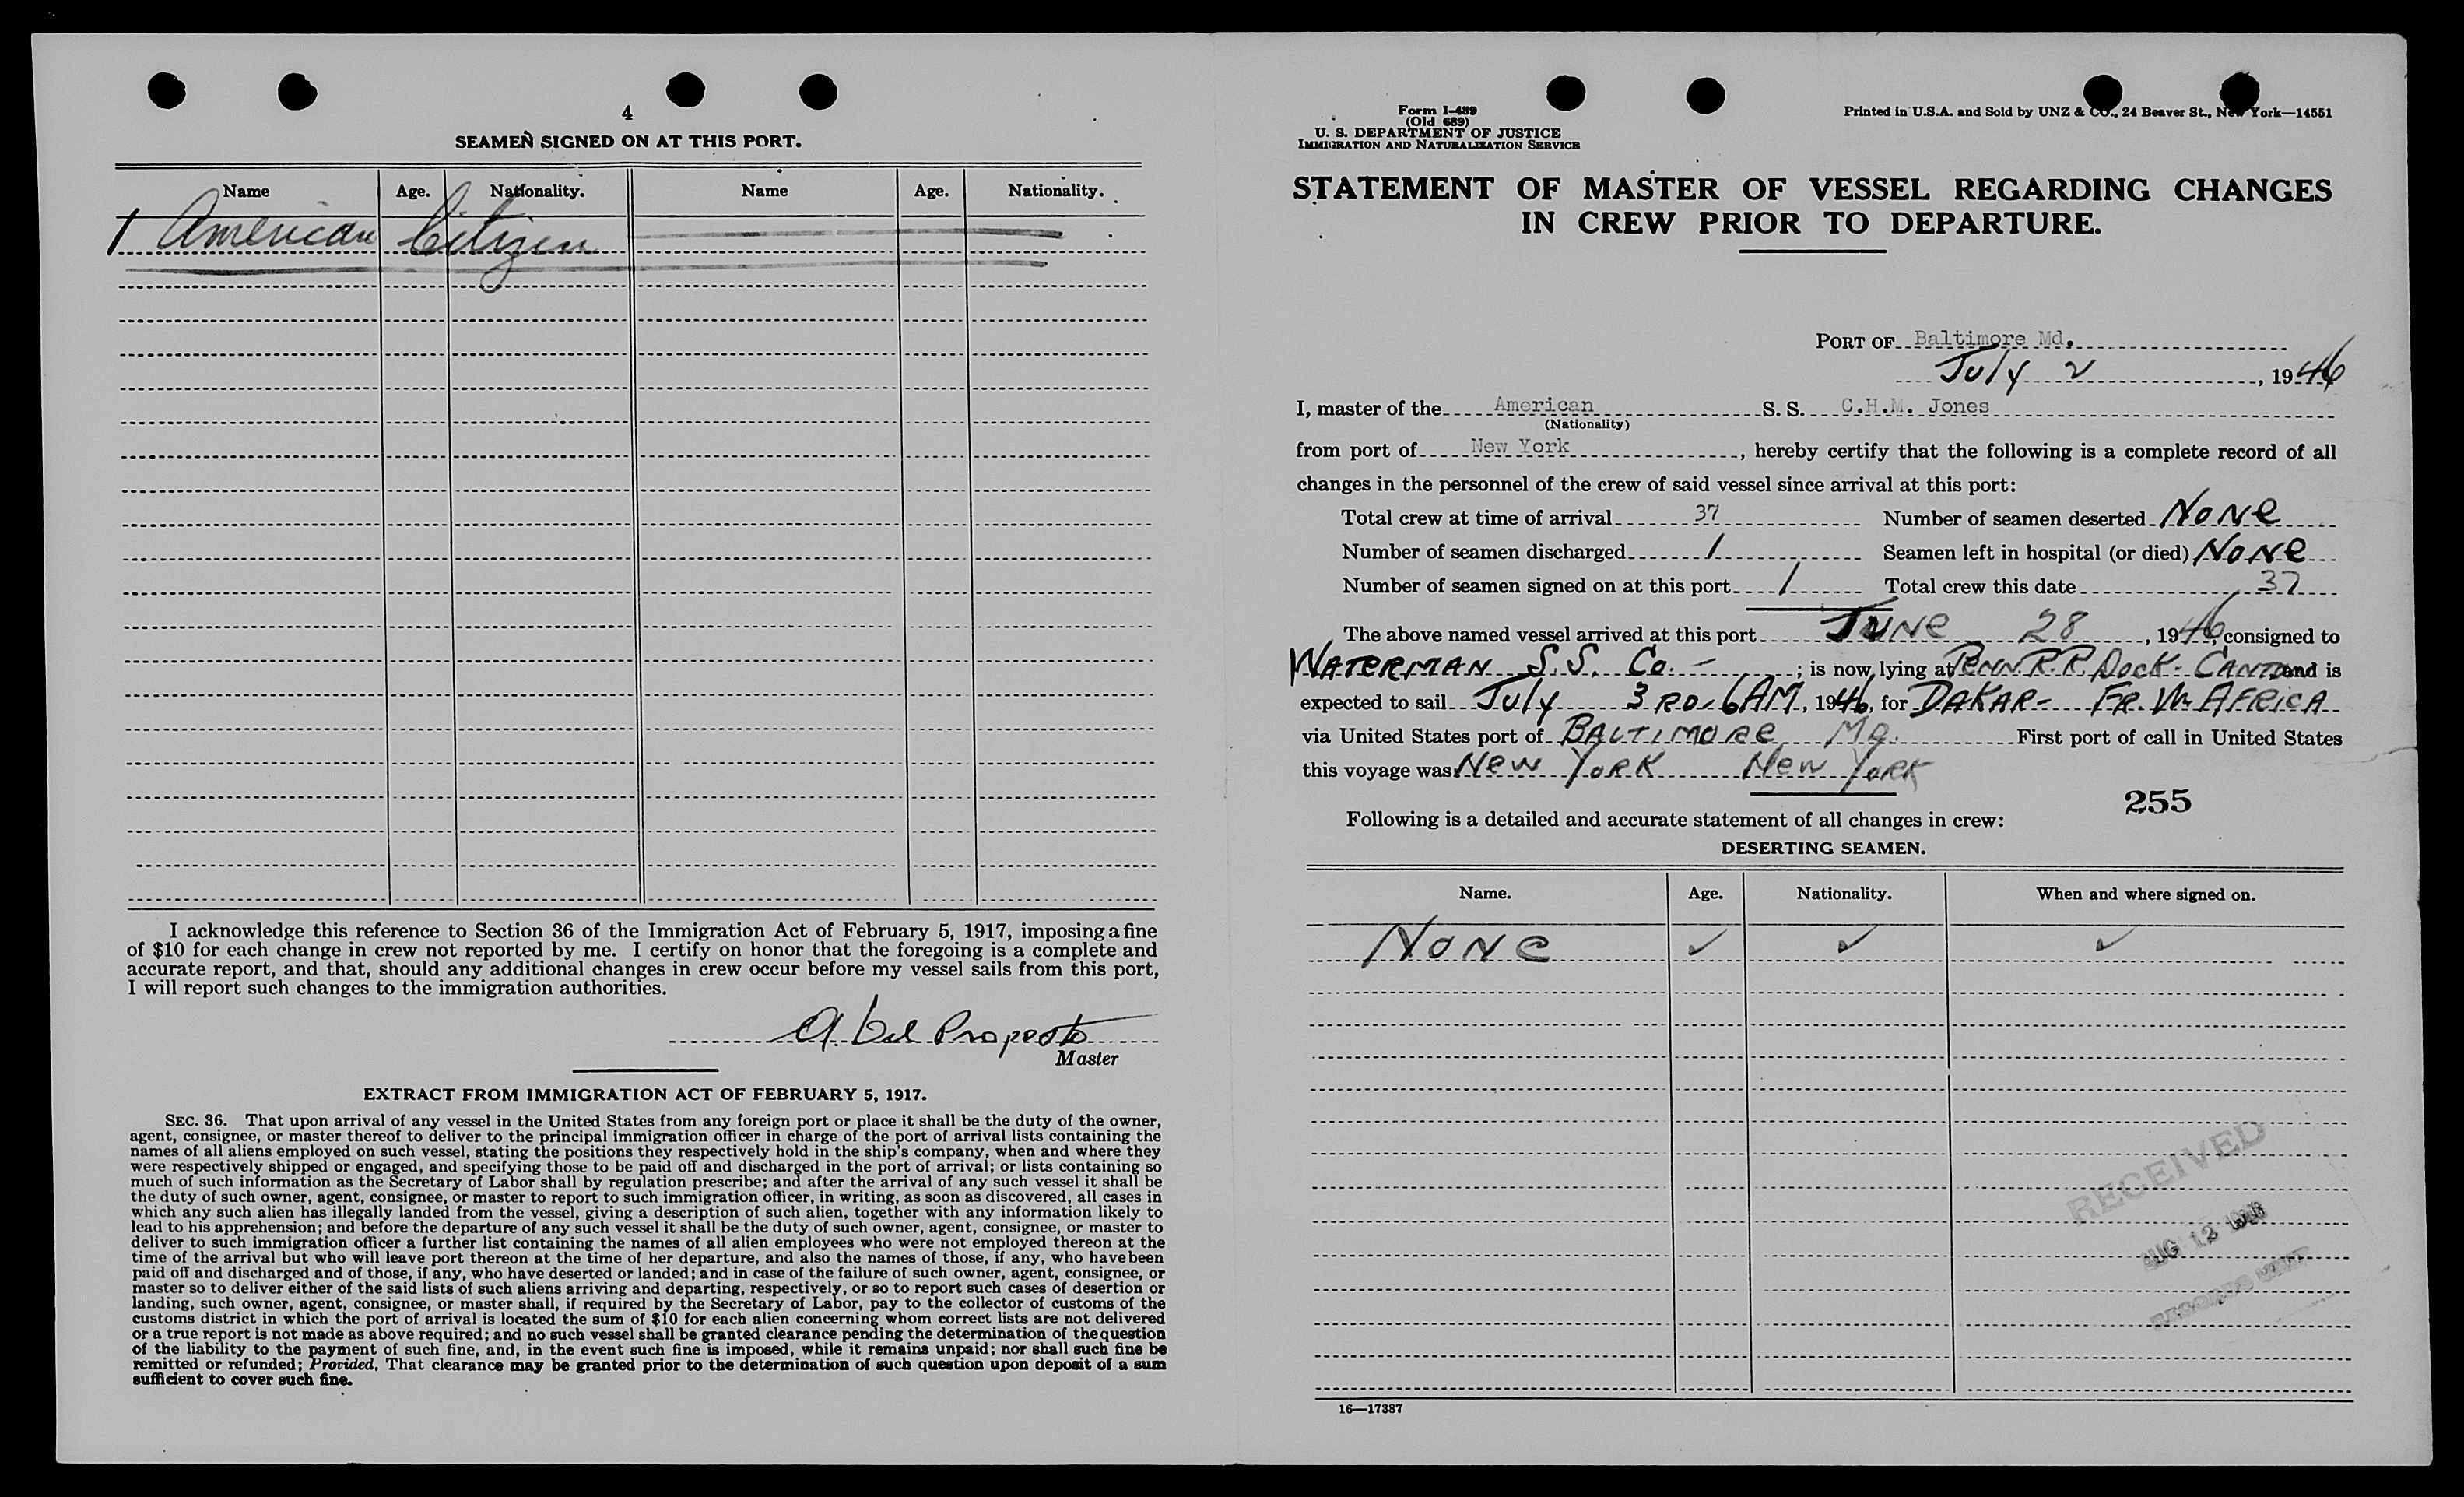 4
SEAMEN SIGNED ON AT THIS PORT.
Name Age. Nationality. Name Age. Nationality.
1 American Citizen
I acknowledge this reference to Section 36 of the Immigration Act of February 5, 1917, imposing a fine
of $10 for each change in crew not reported by me. I certify on honor that the foregoing is a complete and
accurate report, and that, should any additional changes in crew occur before my vessel sails from this port,
I will report such changes to the immigration authorities.
A. Del Proposto
Master
EXTRACT FROM IMMIGRATION ACT OF FEBRUARY 5, 1917.
SEC. 36. That upon arrival of any vessel in the United States from any foreign port or place it shall be the duty of the owner,
agent, consignee, or master thereof to deliver to the principal immigration officer in charge of the port of arrival lists containing the
names of all aliens employed on such vessel, stating the positions they respectively hold in the ship's company, when and where they
were respectively shipped or engaged, and specifying those to be paid off and discharged in the port of arrival; or lists containing so
much of such information as the Secretary of Labor shall by regulation prescribe; and after the arrival of any such vessel it shall be
the duty of such owner, agent, consignee, or master to report to such immigration officer, in writing, as soon as discovered, all cases in
which any such alien has illegally landed from the vessel, giving a description of such alien, together with any information likely to
lead to his apprehension; and before the departure of any such vessel it shall be the duty of such owner, agent, consignee, or master to
deliver to such immigration officer a further list containing the names of all alien employees who were not employed thereon at the
time of the arrival but who will leave port thereon at the time of her departure, and also the names of those, if any, who have been
paid off and discharged and of those, if any, who have deserted or landed; and in case of the failure of such owner, agent, consignee, or
master so to deliver either of the said lists of such aliens arriving and departing, respectively, or so to report such cases of desertion or
landing, such owner, agent, consignee, or master shall, if required by the Secretary of Labor, pay to the collector of customs of the
customs district in which the port of arrival is located the sum of $10 for each alien concerning whom correct lists are not delivered
or a true report is not made as above required; and no such vessel shall be granted clearance pending the determination of the question
of the liability to the payment of such fine, and, in the event such fine is imposed, while it remains unpaid; nor shall such fine be
remitted or refunded; Provided, That clearance may be granted prior to the determination of such question upon deposit of a sum
sufficient to cover such fine.
Form I-489
(Old 689)
U. S. DEPARTMENT OF JUSTICE
IMMIGRATION AND NATURALIZATION SERVICE
Printed in U.S.A. and Sold by UNZ & CO., 24 Beaver St., New York—14551
STATEMENT OF MASTER OF VESSEL REGARDING CHANGES
IN CREW PRIOR TO DEPARTURE.
PORT OF Baltimore Md.
July 2, 1946
I, master of the American S. S. C.H.M. Jones
(Nationality)
from port of New York, hereby certify that the following is a complete record of all
changes in the personnel of the crew of said vessel since arrival at this port:
Total crew at time of arrival 37 Number of seamen deserted None
Number of seamen discharged 1 Seamen left in hospital (or died) None
Number of seamen signed on at this port 1 Total crew this date 37
The above named vessel arrived at this port June 28, 1946, consigned to
WATERMAN S.S. Co. - ; is now lying at Penn R.R. Dock - CANTON and is
expected to sail July 3 RD - 6 AM, 1946, for DAKAR - FR. W. AFRICA
via United States port of BALTIMORE Md. First port of call in United States
this voyage was New York New York
255
Following is a detailed and accurate statement of all changes in crew:
DESERTING SEAMEN.
Name. Age. Nationality. When and where signed on.
None ✓ ✓ ✓
RECEIVED
AUG 12
16—17387